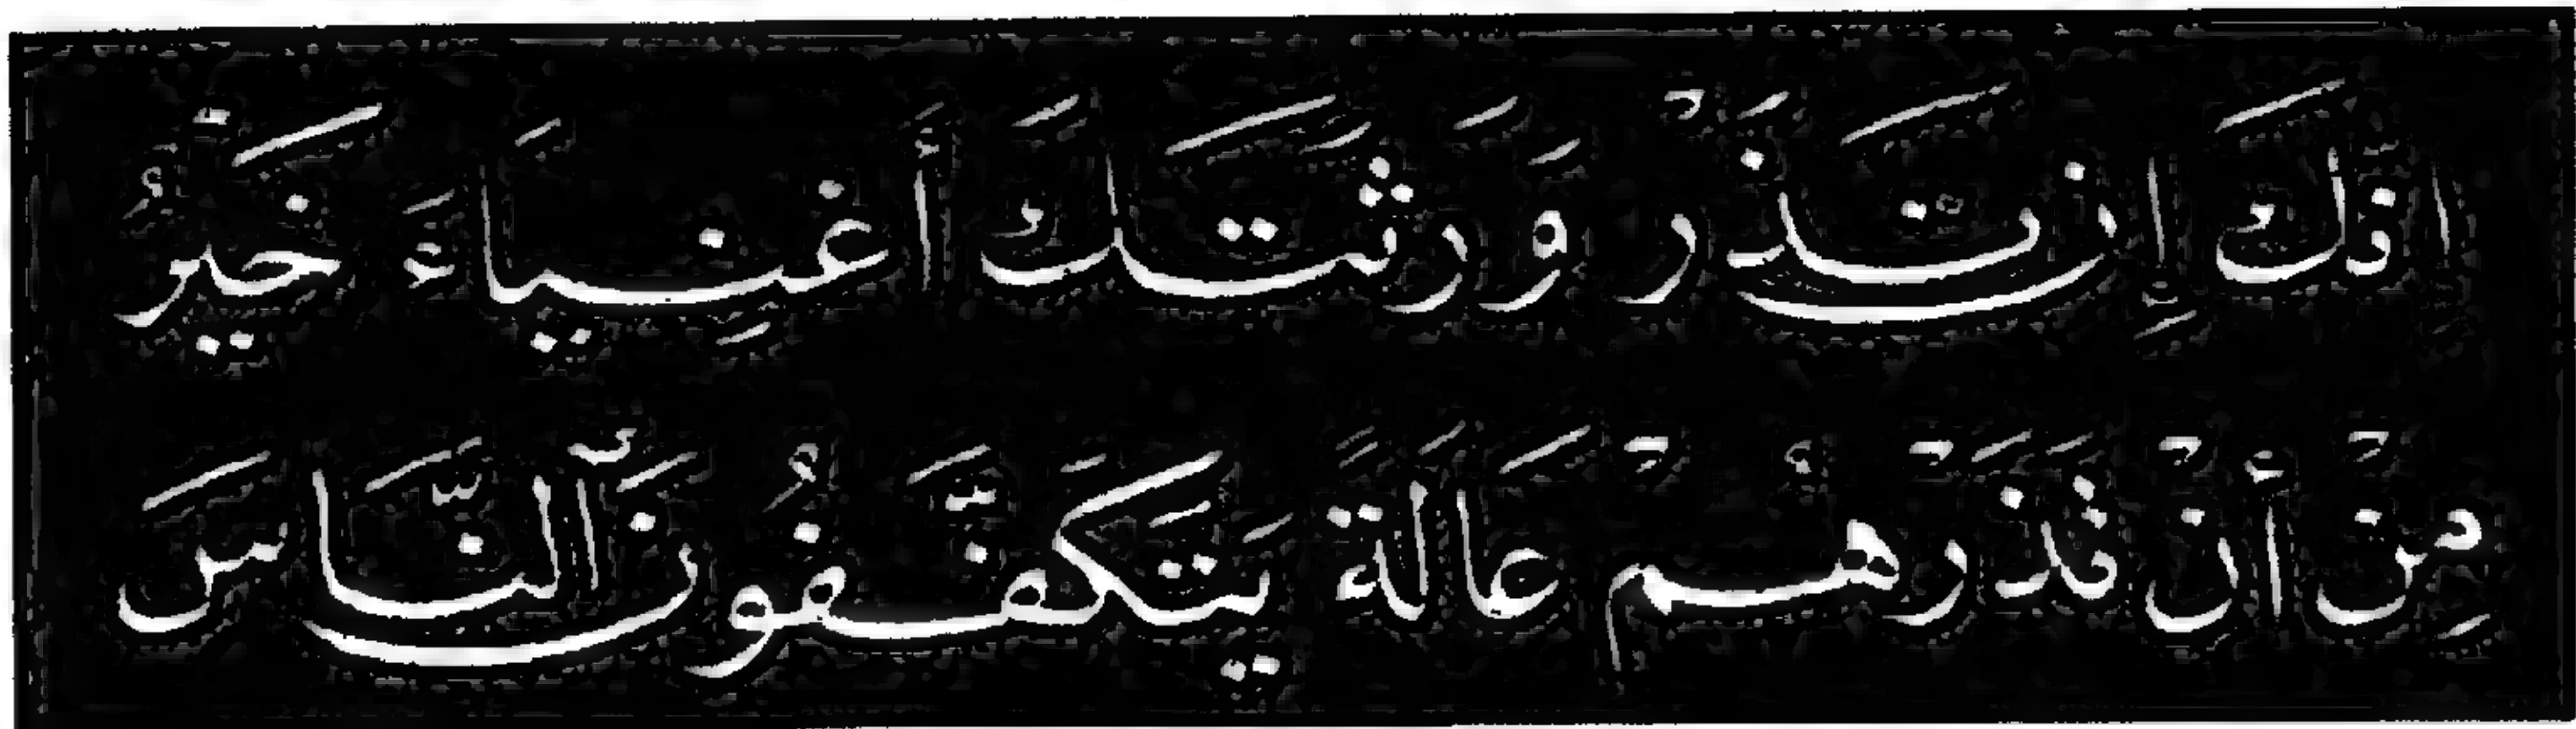 اِنَّكَ إِن تَذَرْ وَرَثَتَكَ أَغنِيَاءَ خَيْرٌ
مِنْ أَنْ تَذَرْهُمْ عَالَةً يَتَكَفَّفُونَ ٱلنَّاسَ